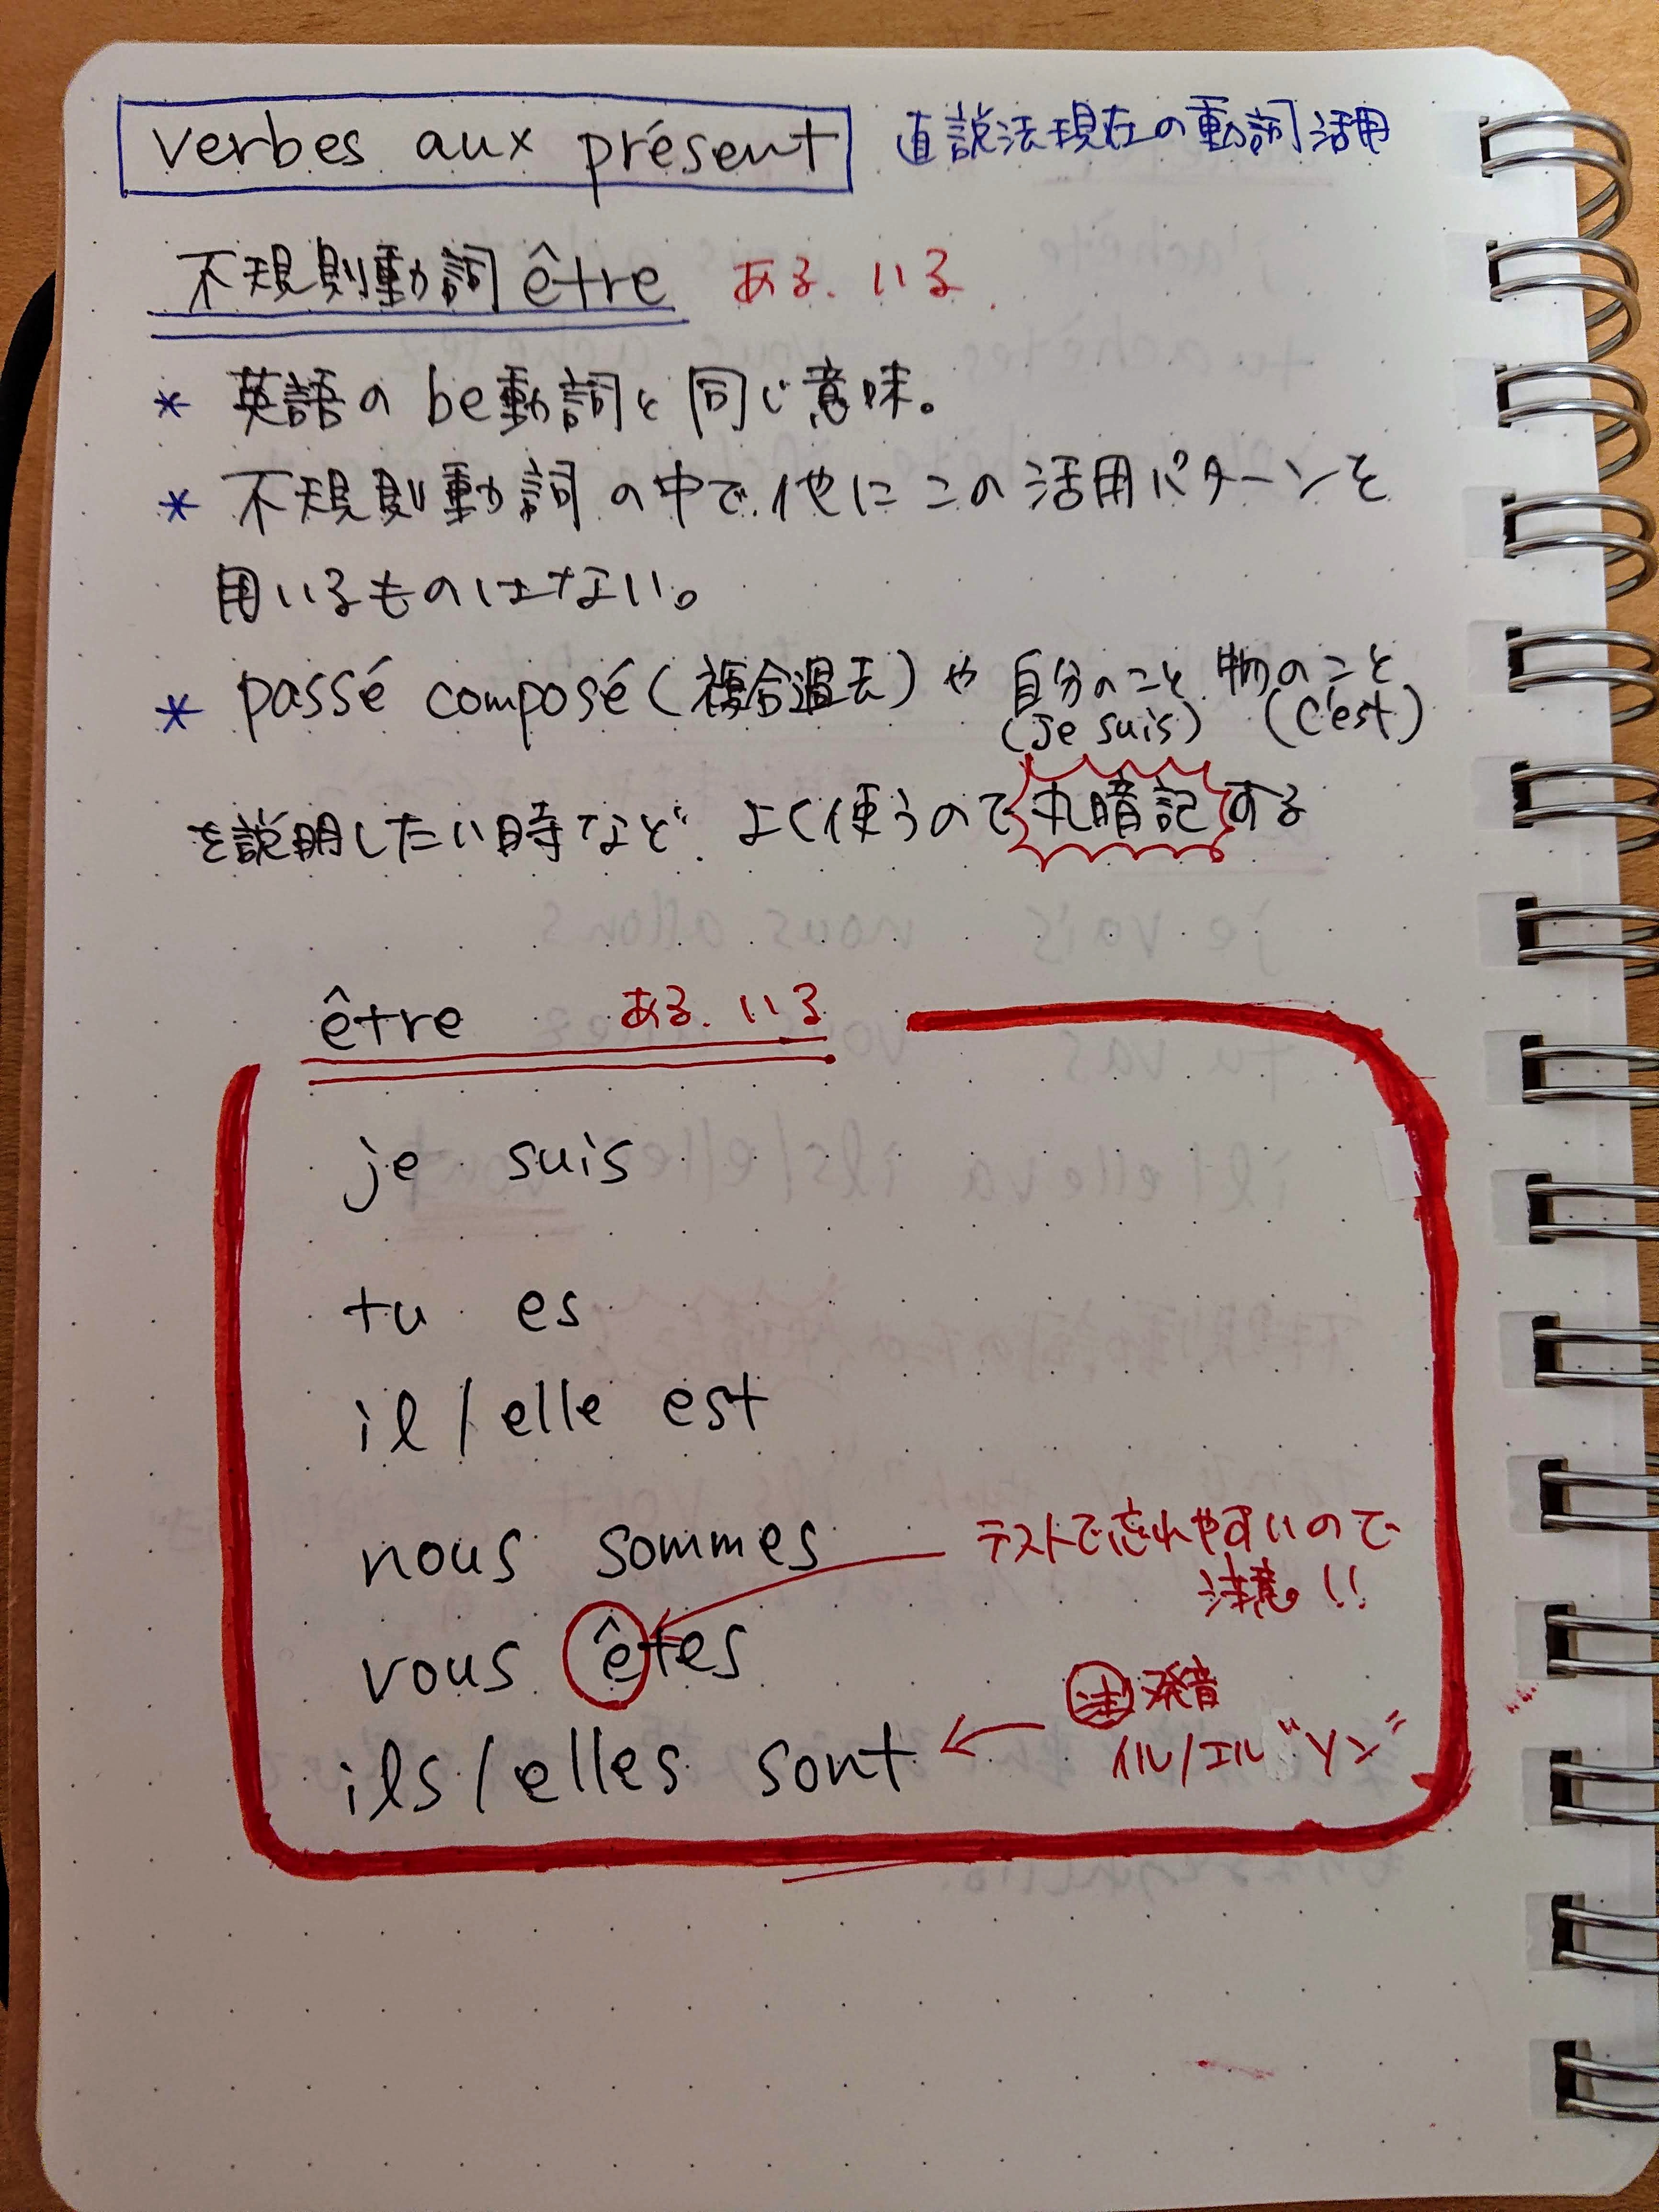 verbes aux présent 直説法現在の動詞活用
不規則動詞 être ある、いる
* 英語の be動詞と同じ意味。
* 不規則動詞の中で、他にこの活用パターンを
用いるものはない。
* passé composé (複合過去) や 自分のこと、物のこと
(je suis) (c'est)
を説明したい時など、よく使うので丸暗記する
être ある、いる
je suis
tu es
il / elle est
nous sommes
テストで忘れやすいので
注意!!
vous êtes
注 発音
イル/エル "ソン"
ils / elles sont